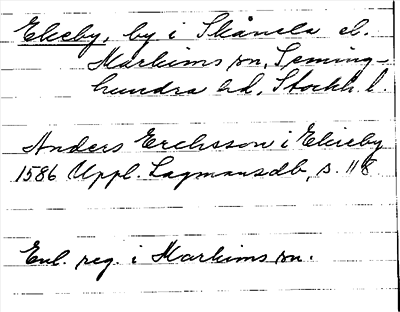 Ekeby, by i Skånela el.
Markims sn, Seming-
hundra hd, Stockh. l.
Anders Erichsson i Ekieby
1586 Uppl. Lagmansdb, s. 118.
Enl. reg. i Markims sn.